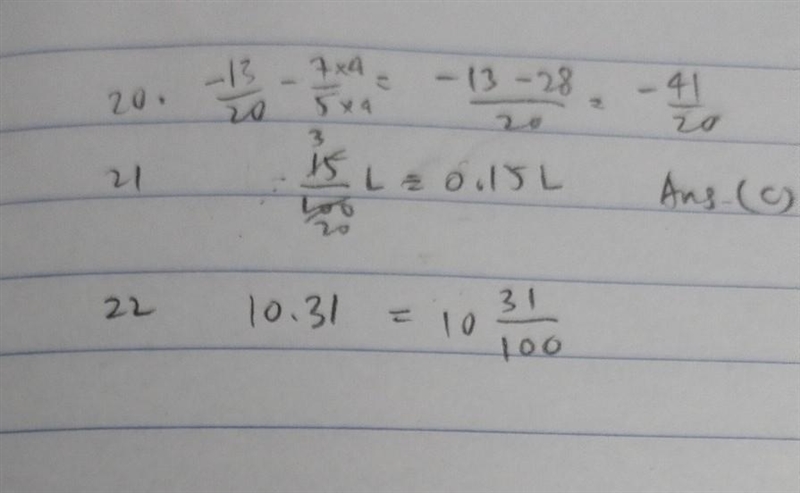 20. -13/20 - 7×4/5×4 = -13-28/20 = -41/20
21 3 15/100 20 L = 0.15L Ans.(C)
22 10.31 = 10 31/100